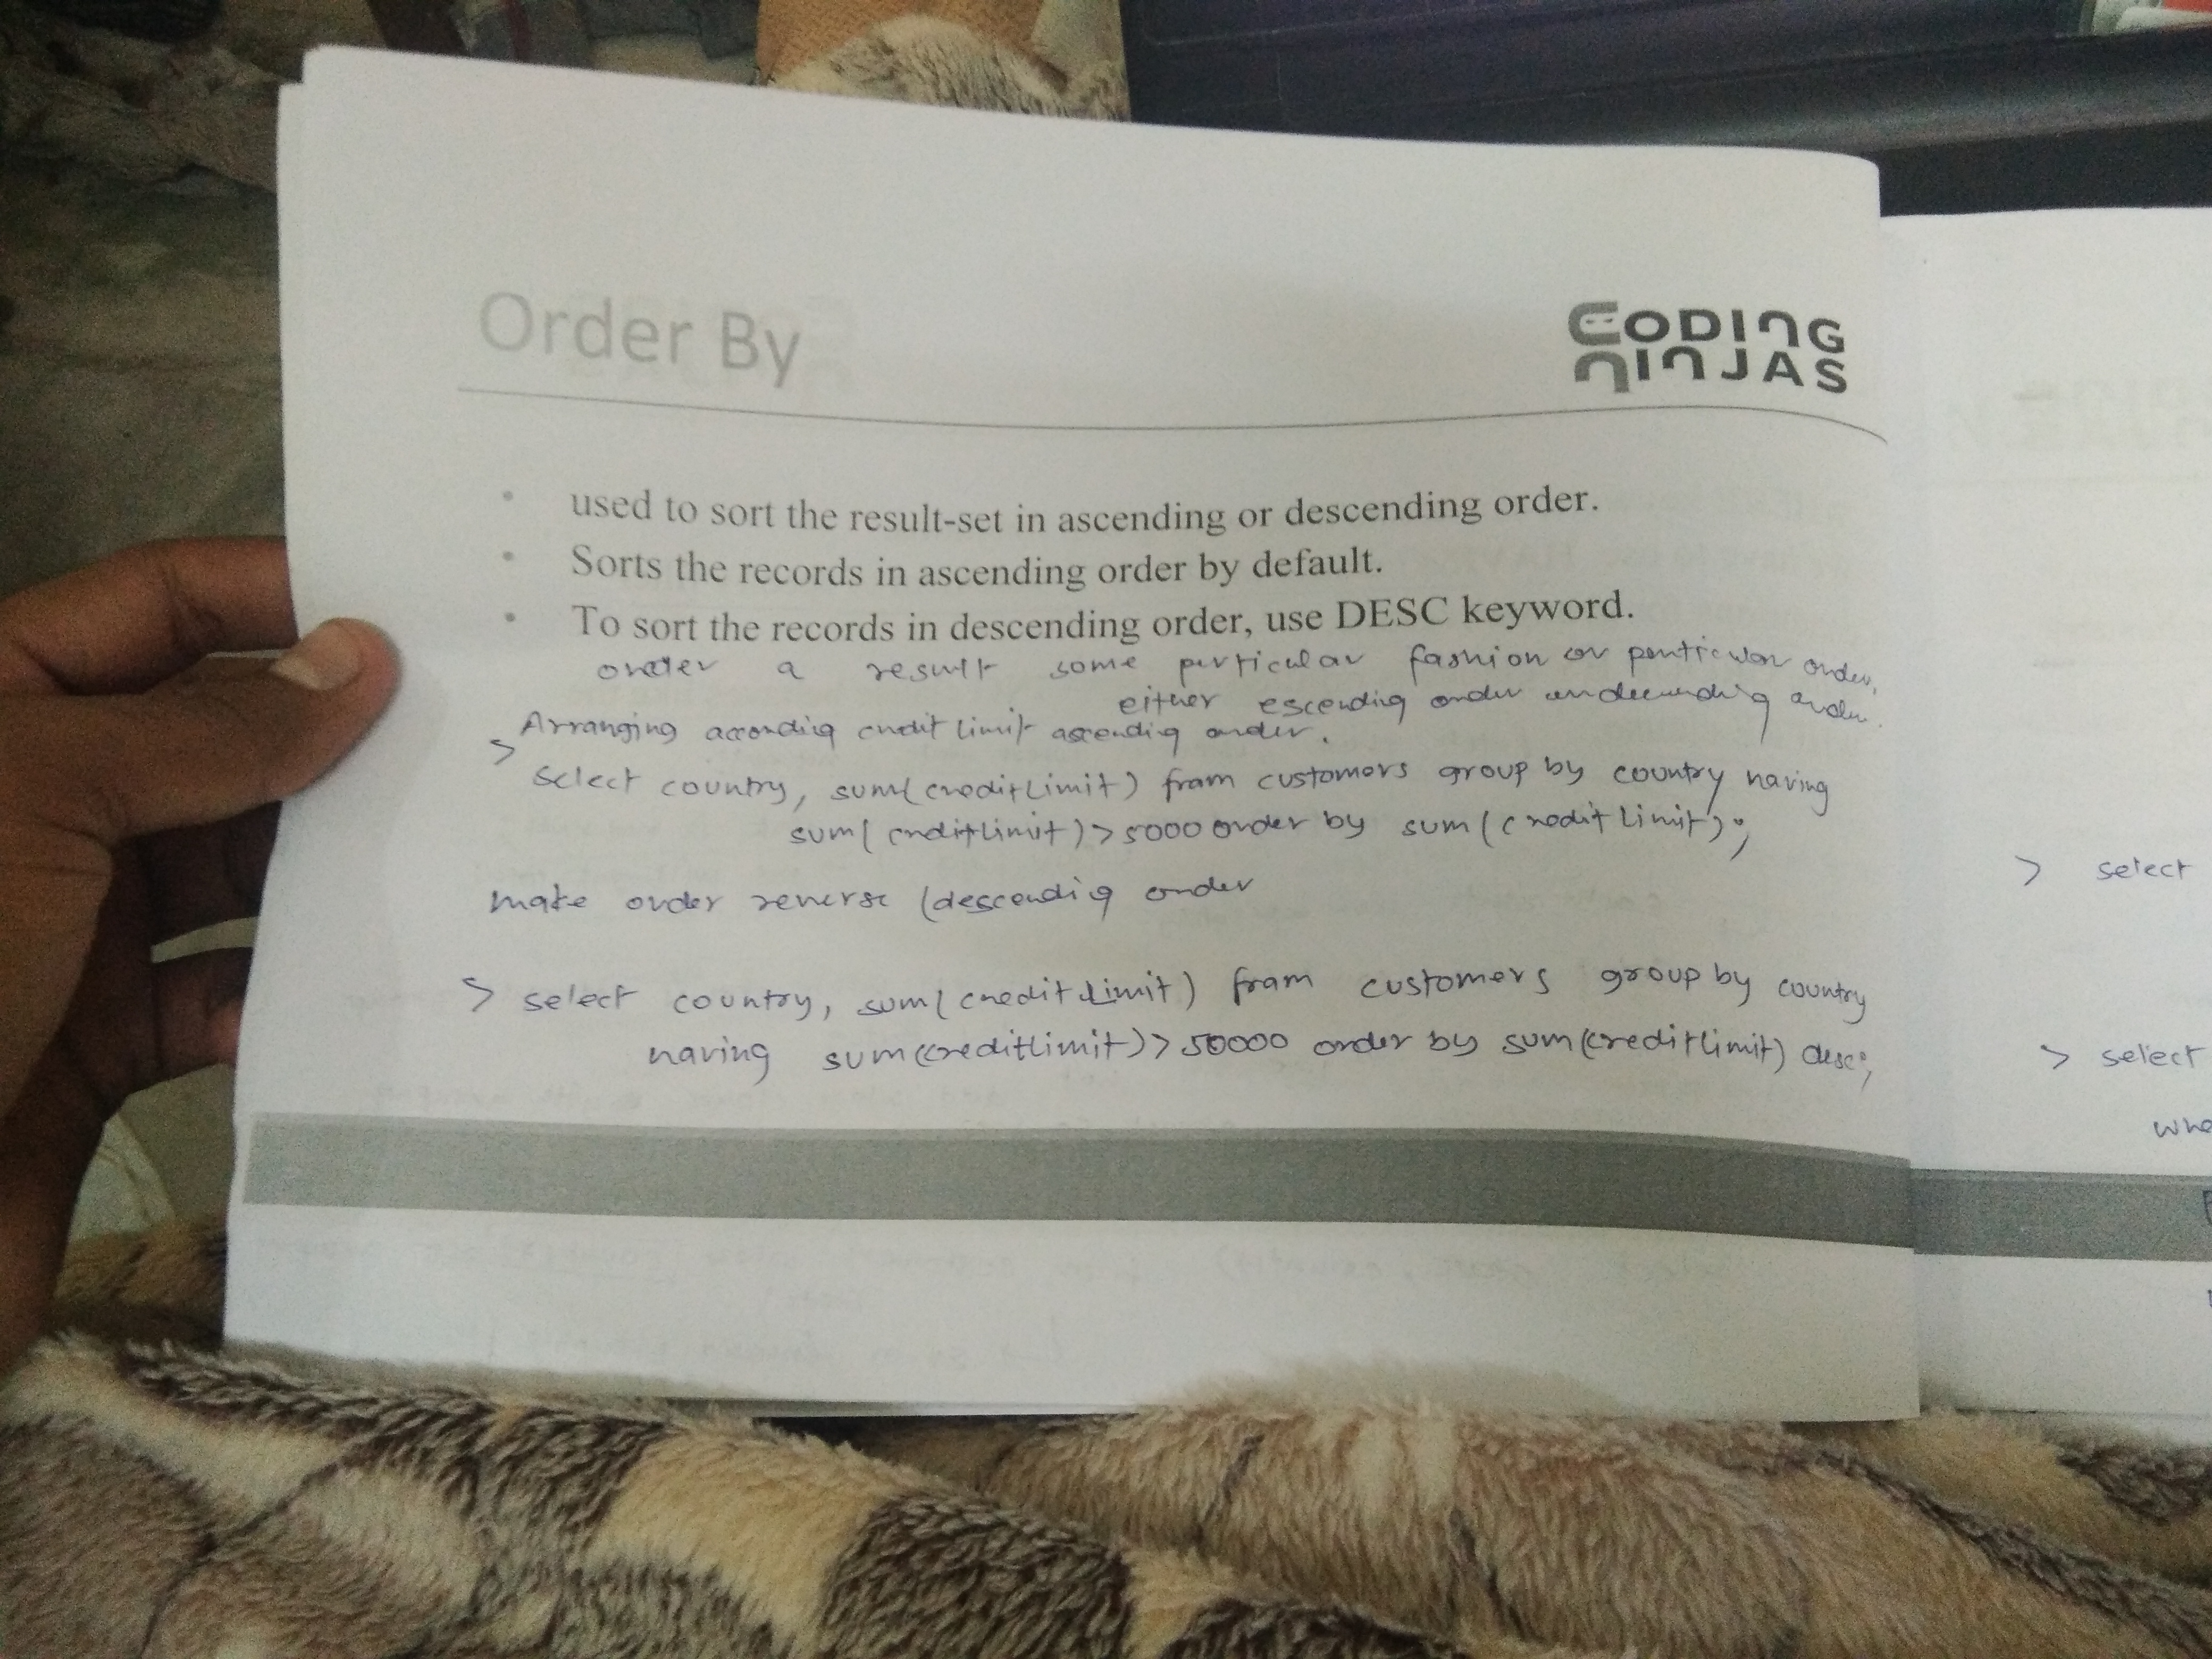 Order By
CODING
NINJAS
used to sort the result-set in ascending or descending order.
Sorts the records in ascending order by default.
To sort the records in descending order, use DESC keyword.
order a result some perticular fashion or particular order,
either escending order order.
Arranging accordig credit limit ascendig order.
>
select country, sum(creditLimit) from customers group by country having
sum(creditlimit)>5000 order by sum(creditLimit);
make order reverse (descendig order
> select country, sum(creditLimit) from customers group by country
having sum(creditlimit)>50000 order by sum(creditlimit) desc;
> select
> select
whe